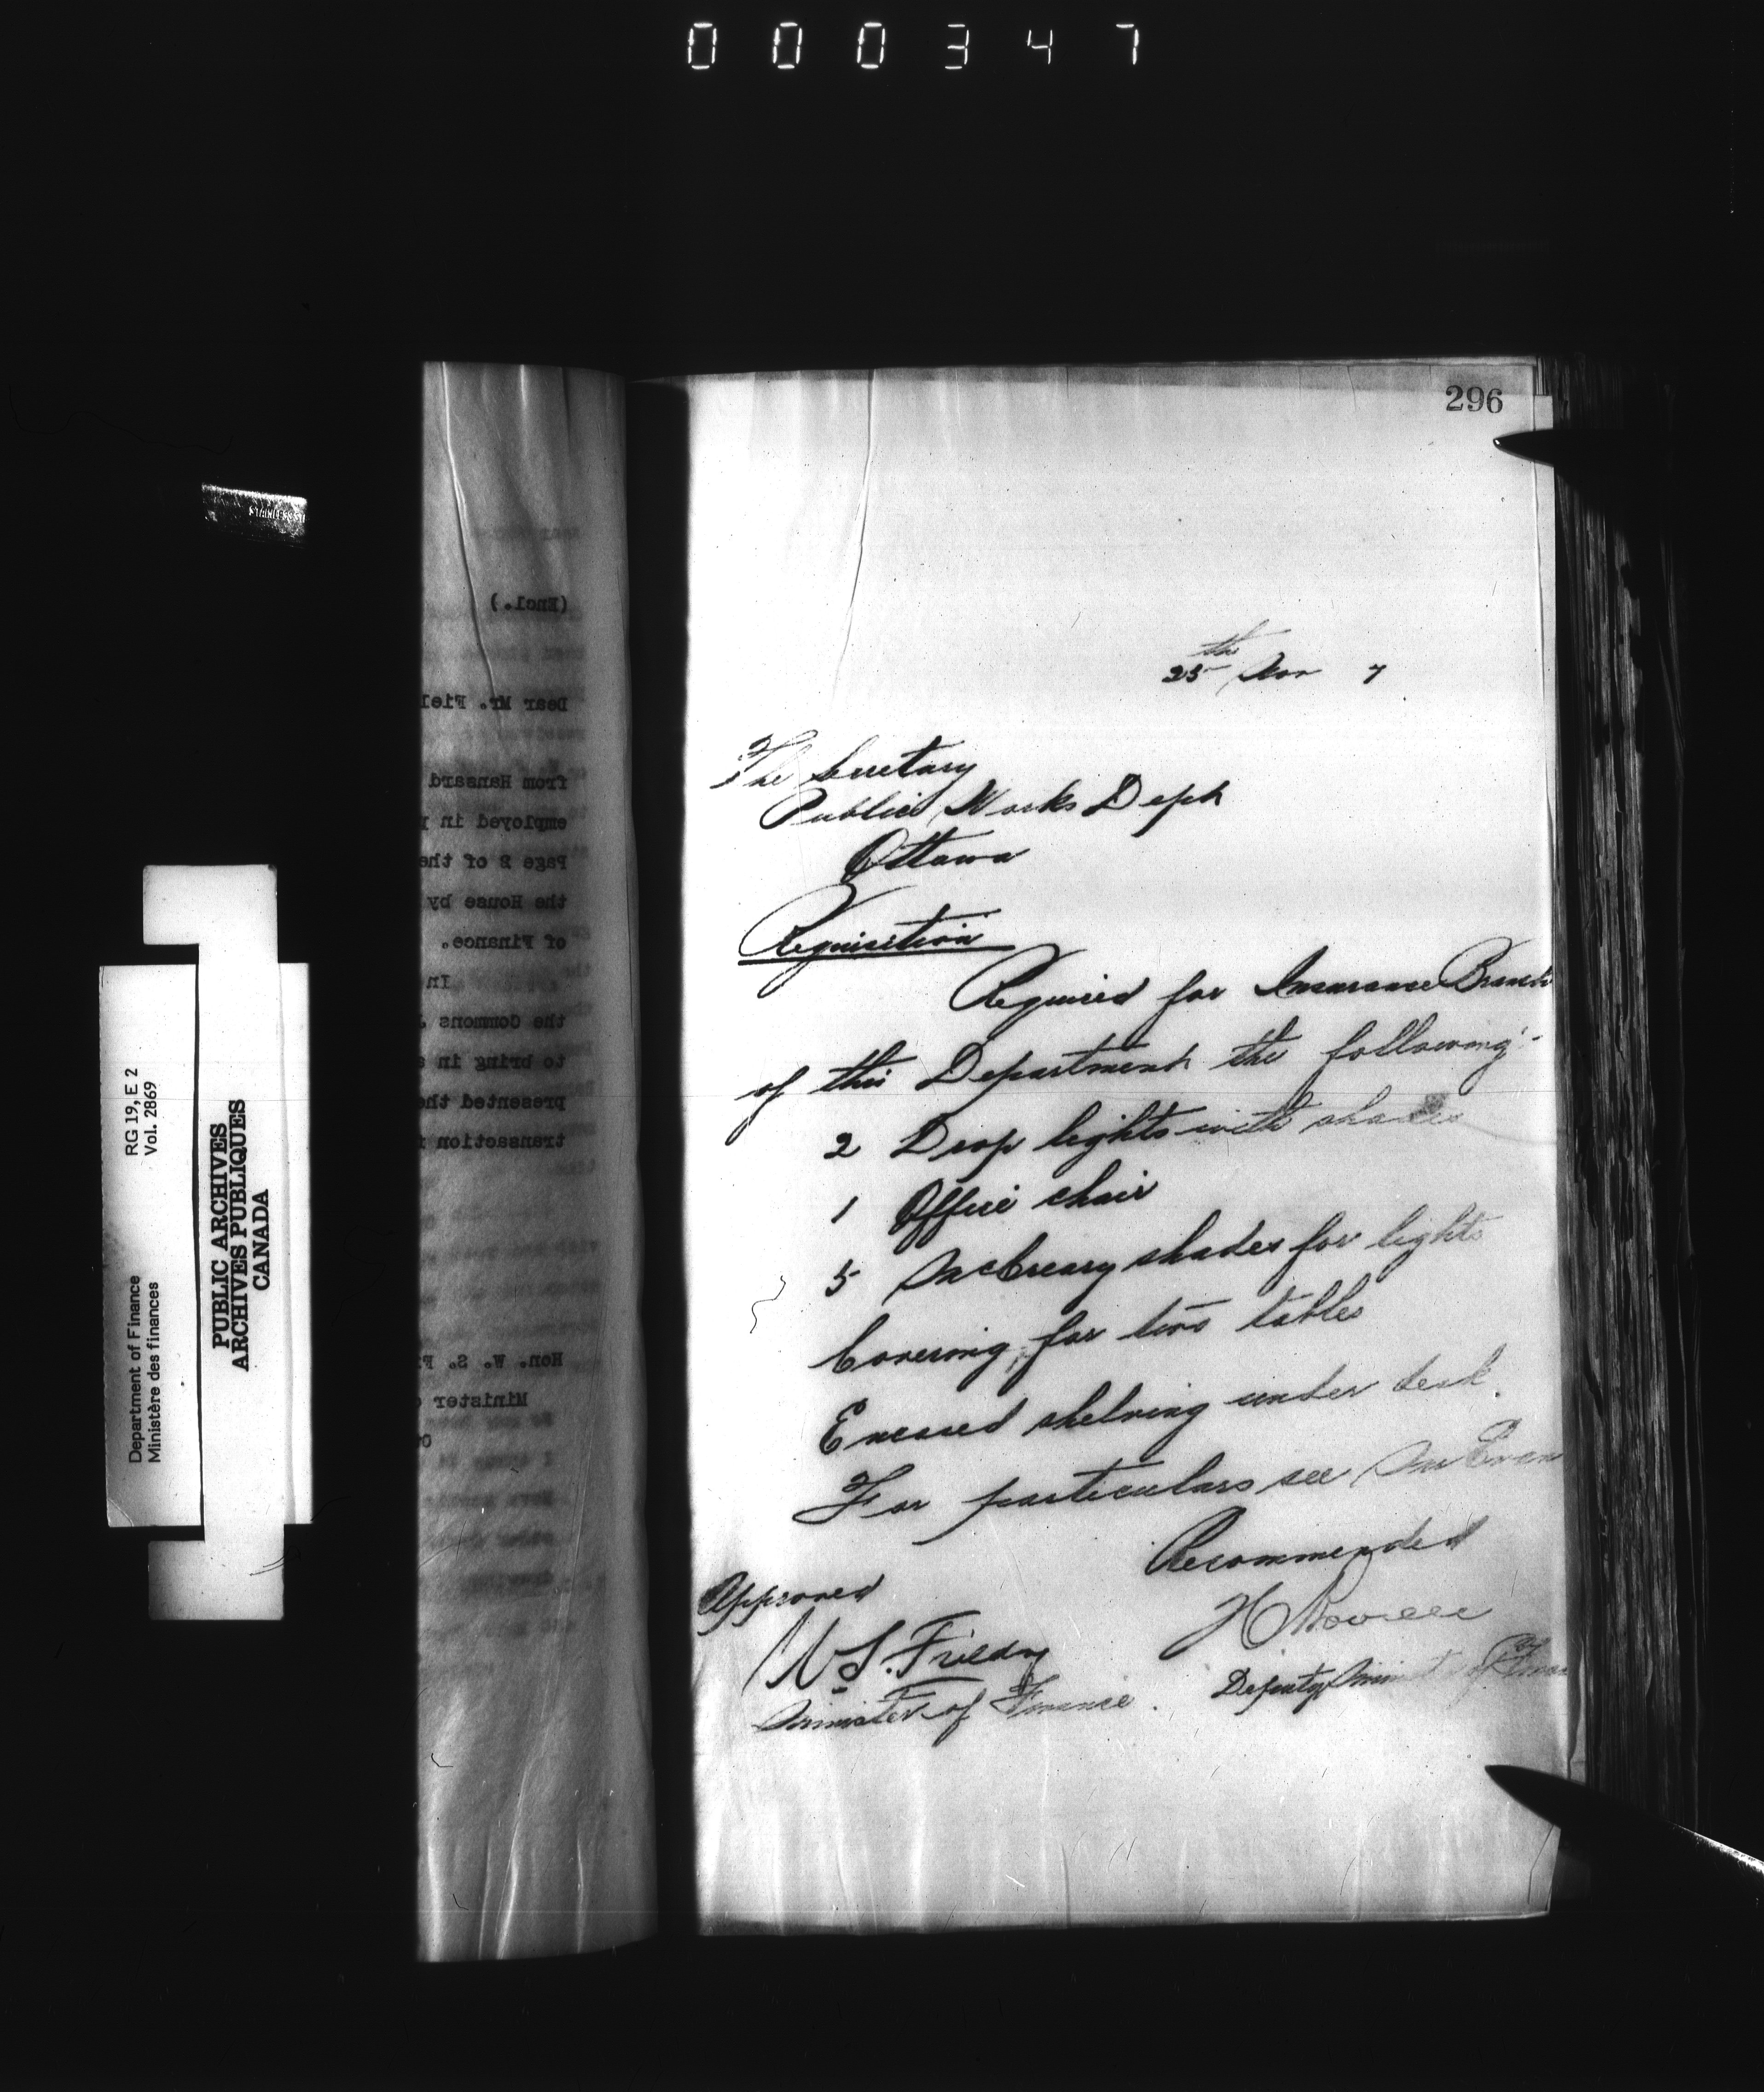 000347
296
25th Nov 7
The Secretary
Public Works Dept
Ottawa
Requisition
Required for Insurance Branch
of this Department the following:-
2 Drop lights with shades
1 Office chair
5 McCreary shades for lights
Covering for two tables
Encased shelving under desk.
For particulars see Mr
Recommended
Approved
W S. Fielding
Minister of Finance.
Deputy Minister of Finan
(Encl.)
Dear Mr. Fiel
from Hansard
employed in
Page 2 of the
the House by
of Finance.
In
the Commons
to bring in
presented the
transaction
Hon. W. S. F
Minister
RG 19, E 2
Vol. 2869
Department of Finance
Ministère des finances
PUBLIC ARCHIVES
ARCHIVES PUBLIQUES
CANADA